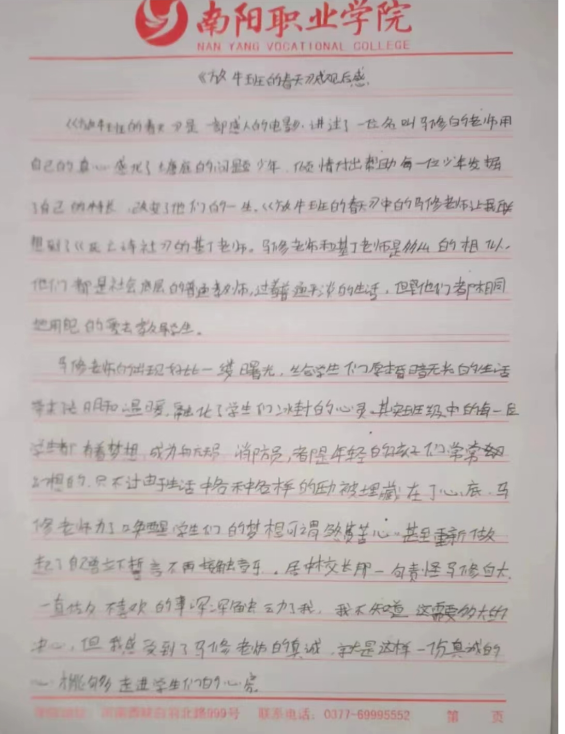 南阳职业学院
NAN YANG VOCATIONAL COLLEGE
《放牛班的春天》观后感
《放牛班的春天》是一部感人的电影,讲述了一位名叫马修的老师用
自己的真心感化了的问题少年,帮助每一位少年发掘
了自己的特长,改变了他们的一生。《放牛班的春天》中的马修老师让我联
想到了《死亡诗社》的基丁老师。马修老师和基丁老师是多么的相似,
他们都是社会底层的普通教师,过着普通的生活,但是他们都相同
地用自己的爱去教导学生。
马修老师的出现好比一缕曙光,给学生们原本暗无天日的生活
带来光明和温暖,融化了学生们冰封的心灵。其实班级中的每一名
学生都有着梦想,成为,消防员,都是年轻的孩子们常常
幻想的,只不过由于生活中各种各样的被埋藏在了心底。马
修老师为了唤醒学生们的梦想可谓煞费苦心。甚至重新做
起了自己曾立下誓言不再接触音乐。居中校长用一句责怪马修的
一直做不喜欢的事深深触动了我,我不知道这需要多大的
决心,但我感受到了马修老师的真诚,就是这样一份真诚的
心才能够走进学生们的心房
999号 联系电话:0377-69995552 第 页